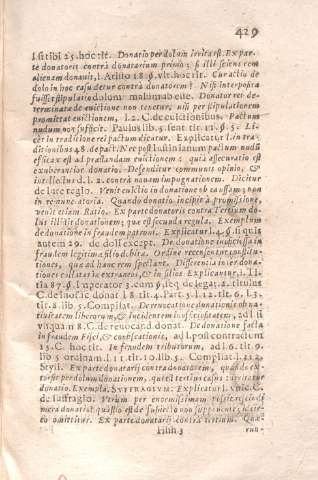 429
I si tibi 25. hoc tit. Donatio per dolum irrita est. Ex par
te donatoris contra donatarium primo; si illi sciens rem
alienam donauit, l. Atilio 18. §. vlt. hoc tit. Cur actio de
dolo in hoc casu detur contra donatorem? Nisi interposita
fuisset stipulatio dolum malum abesse. Donator rei de-
terminatæ de euictione non tenetur, nisi per stipulationem
promittat euictionem, l. 2. C. de euictionibus. Pactum
nudum non sufficit. Paulus lib. 5. sent. tit. 11. §. 5. Li-
cèt in traditione rei pactum dicatur. Explicatur l. in tra-
ditionibus 48. de pact. Nec post Iustinianum pactum nudũ
efficax est ad præstandam euictionem: quia assecuratio est
exuberantior donatio. Defenditur communis opinio, &
intellectus d. l. 2. contra nouam impugnationem. Dicitur
de iure regio. Venit euictio in donatione ob causam; non
in remuneratoria. Quando donatio incipit à promissione,
venit etiam. Ratio. Ex parte donatoris contra Tertium do-
lus illi de donationem; quæ est secunda regula. Exemplum
de donatione in fraudem patroni. Explicatur l. 4. §. si quis
autem 29. de doli except. De donatione inofficiosa in
fraudem legitimæ filio debitæ. Ordine recensentur constitu-
tiones, quæ ad hanc rem spectant. Differentia inter dona-
tiones collatas in extraneos, & in filios. Explicantur, l. Ti-
tia 87. §. Imperator 3. cum seq. de legat. 2. titulus
C. de inoffic. donat. l. 18. tit. 4. Part. 5. l. 12. tit. 6. l. 3.
tit. 8. lib. 5. Compilat. De reuocatione donationis ob na-
tiuitatem liberorum, & incidentem inofficiositatem, ad l. si
vnquam 8. C. de reuocand. donat. De donatione facta
in fraudem Fisci, & confiscationis, ad l. post contractum
15. C. hoc tit. In fraudem tributorum, ad l. 6. tit. 9.
lib. 5. ordinam. l. 11. tit. 10. lib. 5. Compilat. l. 212.
Styli. Ex parte donatarij contra donatorem, quando ex-
torsit per dolum donationem, quæ est tertius casus irritatur
donatio. Exempla, SVFFRAGIVM. Explicatur l. vnic. C.
de suffragio. Verùm per enormissimam possit rescindi
mera donatio? quæstio est
to omittitur. Ex parte donatarij contra tertium. Quæ
Hhh 3